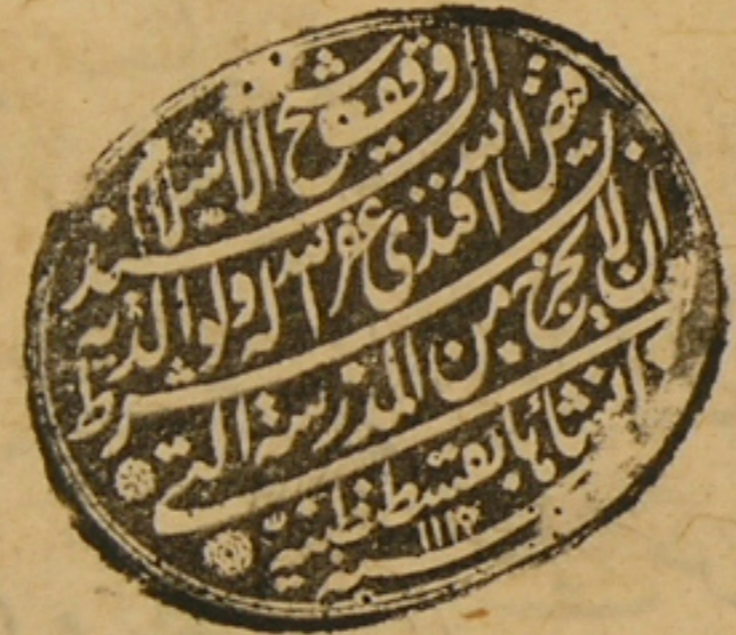 وقف شيخ الاسلام السيد
فيض الله افندى غفر الله له ولوالديه بشرط
ان لا يخرج من المدرسة التي
انشاها بقسطنطينية
سنه